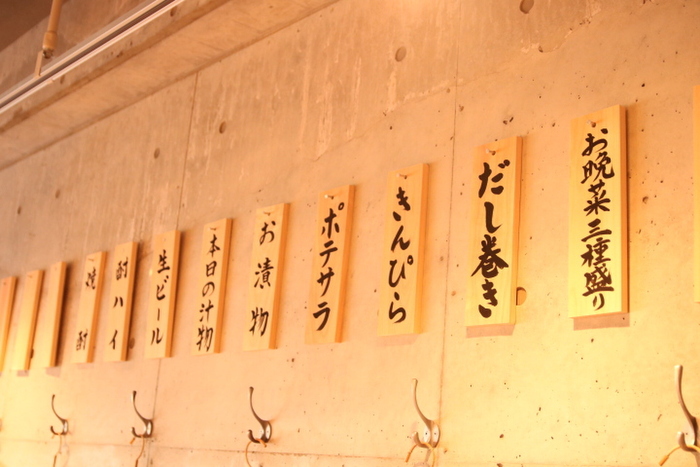 お晩菜三種盛り
だし巻き
きんぴら
ポテサラ
お漬物
本日の汁物
生ビール
酎ハイ
焼酎